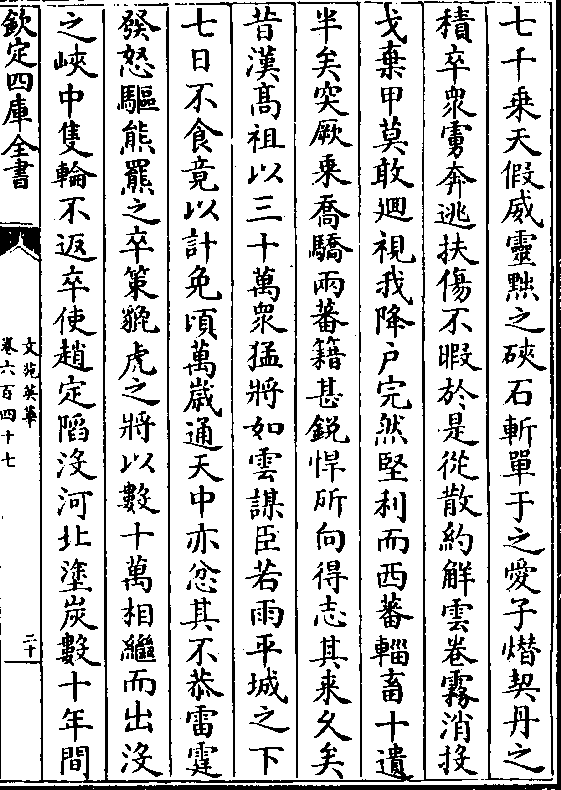 七千乗天假威靈黜之硤石斬單于之愛子熸契丹之
積卒衆虜奔逃扶傷不暇於是從散約解雲卷霧消投
戈棄甲莫敢廻視我降户完然堅利而西蕃輜畜十遺
半矣突厥乗喬驕兩蕃籍甚鋭悍所向得志其来久矣
昔漢高祖以三十萬衆猛將如雲謀臣若雨平城之下
七日不食竟以計免頃萬歳通天中亦忿其不恭雷霆
發怒驅熊羆之卒策貔虎之將以數十萬相繼而出没
之峽中隻輪不返卒使趙定陷没河北塗炭數十年間
欽定四庫全書
文苑英華
卷六百四十七
二十